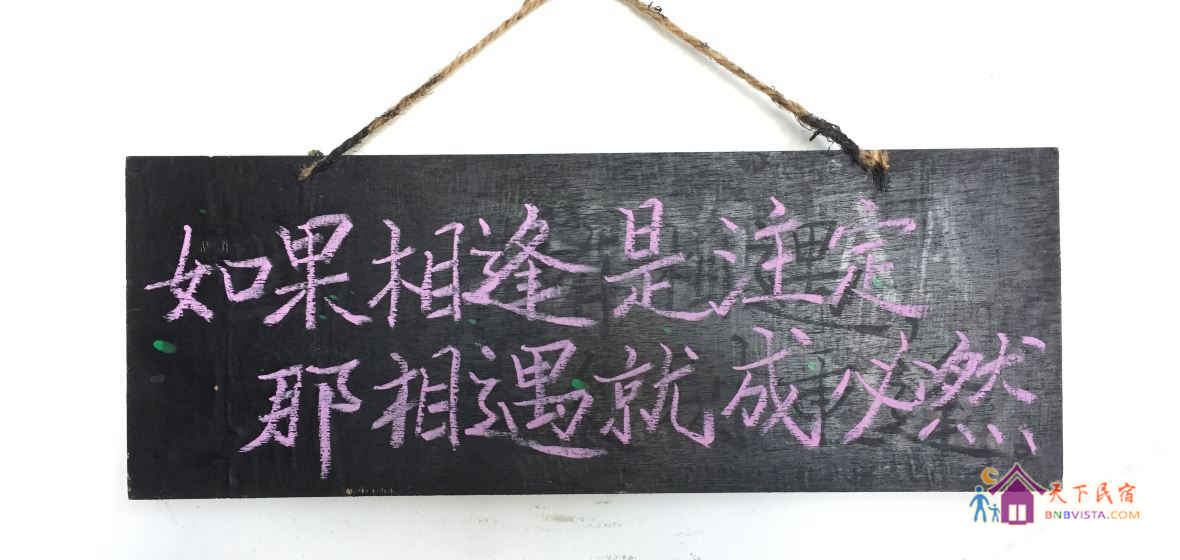 如果相逢是注定
耶相遇就成必然
天下民宿
BNBVISTA.COM